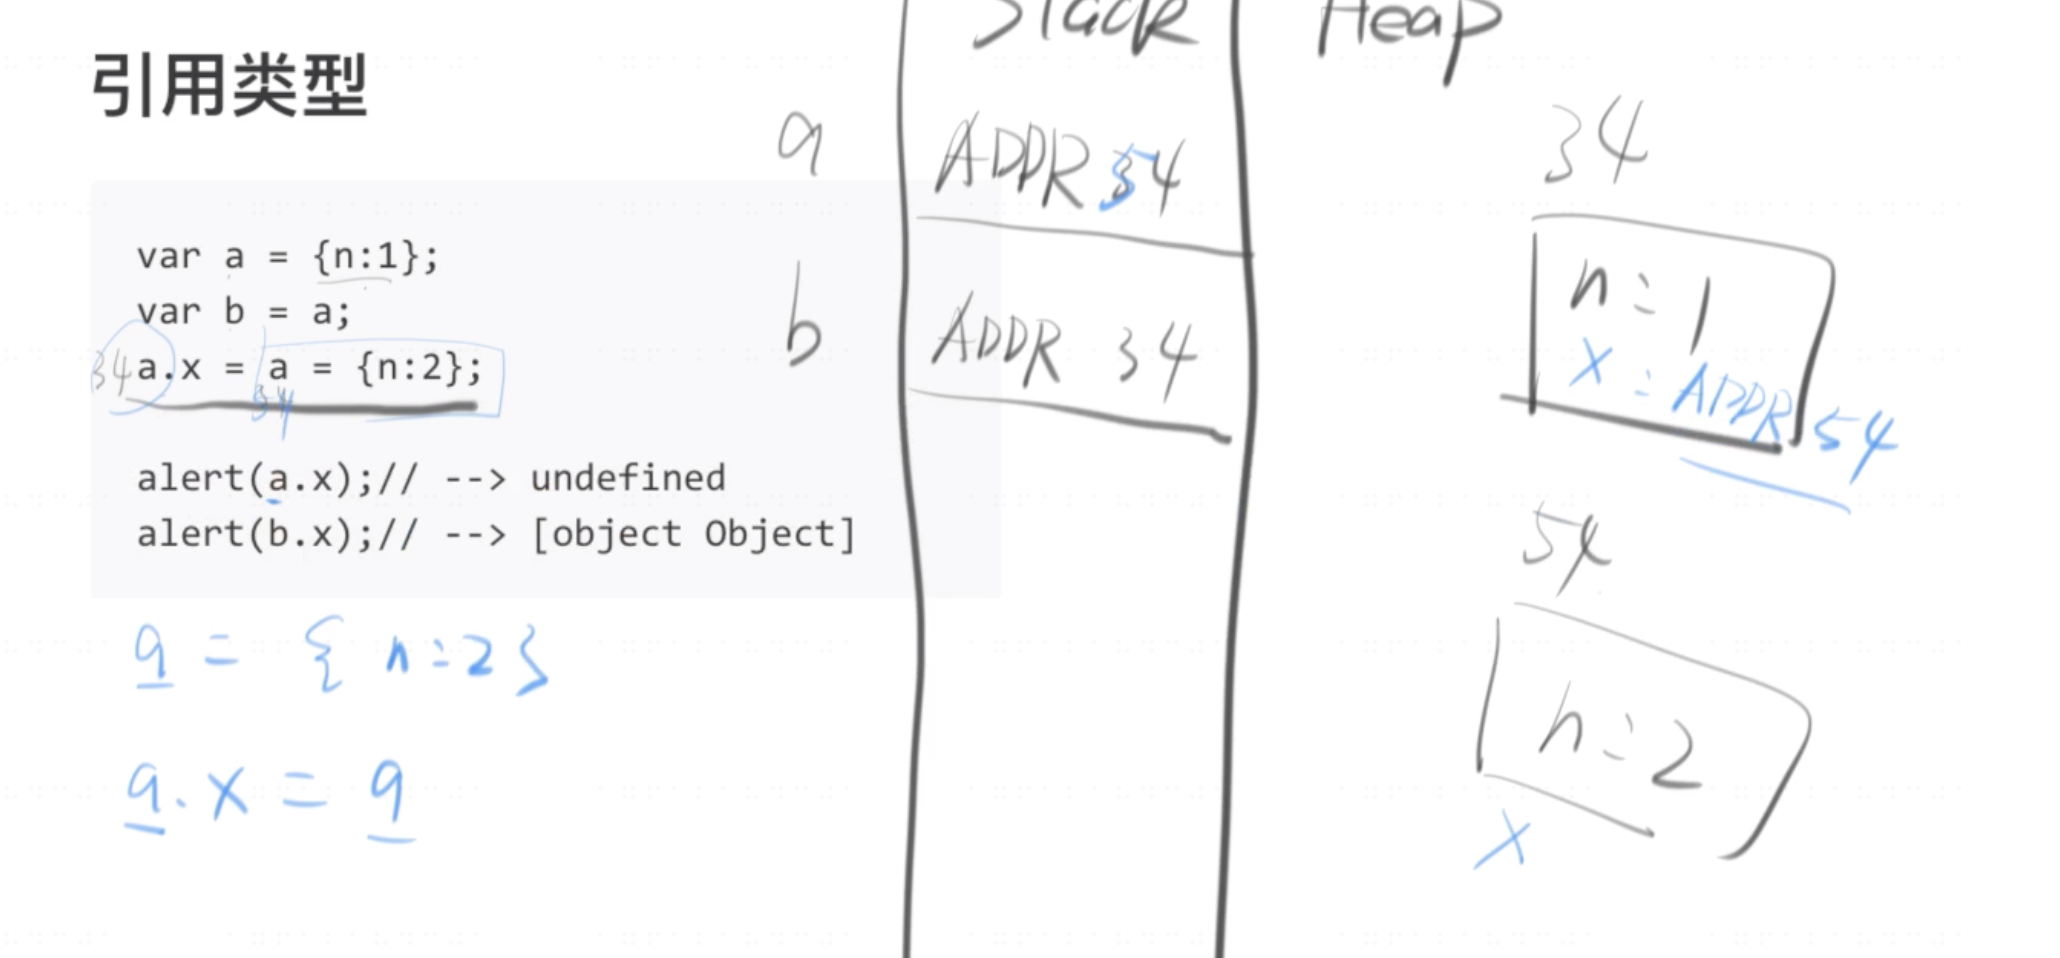 引用类型
var a = {n:1};
var b = a;
34 a.x = a = {n:2};
34
alert(a.x);// --> undefined
alert(b.x);// --> [object Object]
a = { n:2 }
a.x = a
Stack
Heap
a
ADDR 54
b
ADDR 34
34
n:1
x:ADDR 54
54
n:2
x